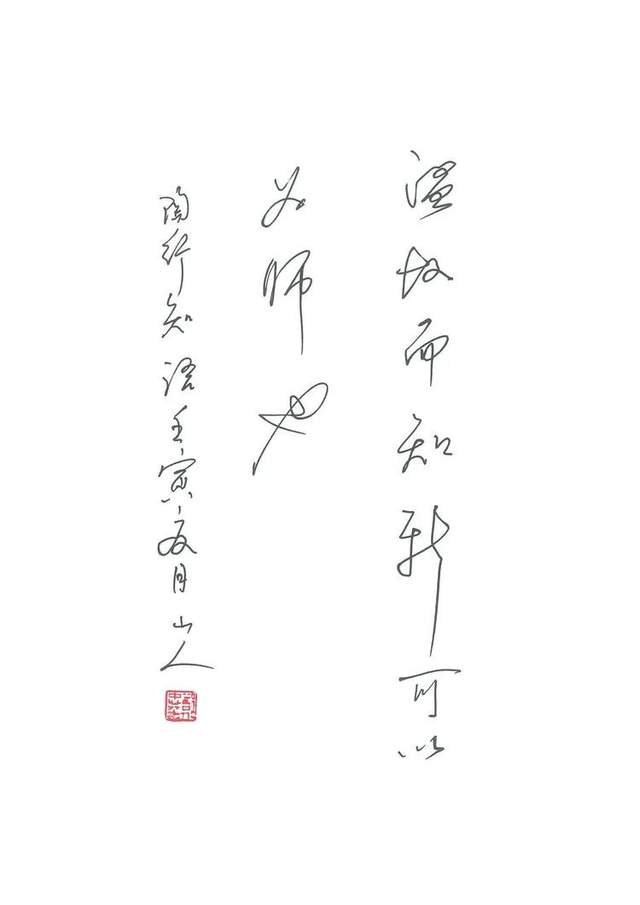 温故而知新可以
为师矣
陶行知语壬寅五月山人